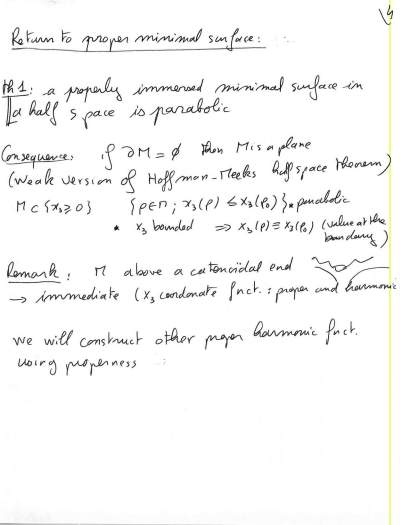 4
Return to proper minimal surface:
th 1: a properly immersed minimal surface in
a half space is parabolic
Consequence: if ∂M = ∅ then M is a plane
(weak version of Hoffman-Meeks half space theorem)
M ⊂ {x₃ ≥ 0} {p ∈ M ; x₃(p) ≤ x₃(p₀)} * parabolic
* x₃ bounded ⇒ x₃(p) ≡ x₃(p₀) (value at the
boundary)
Remark: M above a catenoidal end
→ immediate (x₃ coordonate funct.: proper and harmonic
we will construct other proper harmonic funct.
using properness